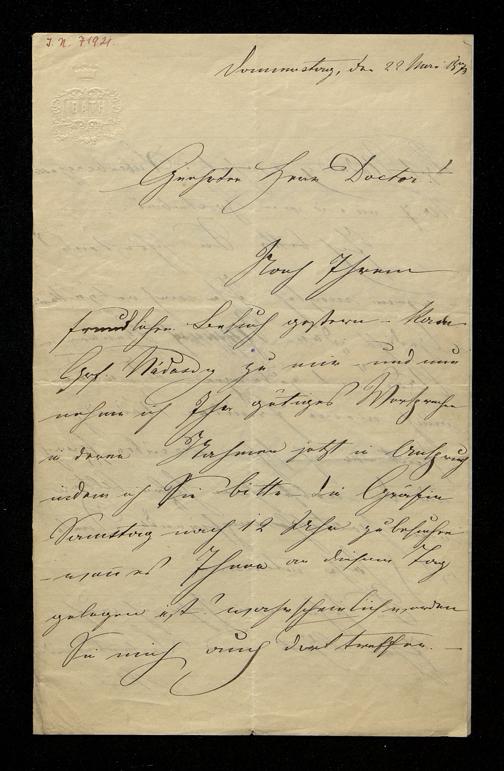 J. N. 71921.
BATH
Donnerstag, den 22 März 1873
Geehrter Herr Doctor!
Nach Ihrem
freundlichen Besuch gestern – kam
Gräf. Nádasdy zu mir, und nun
nehme ich Ihr gütiges Versprechen
in deren Nahmen jetzt in Anspruch
indem ich Sie bitte die Gräfin
Samstag nach 12 Uhr zu besuchen
wenn es Ihnen an diesem Tag
gelegen ist wahrscheinlich werden
Sie mich auch dort treffen. –